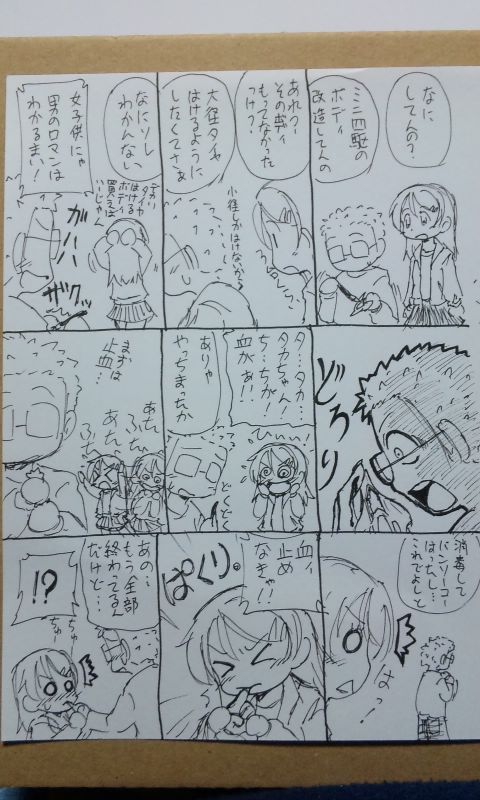 なに
してんの?
ミニ四駆の
ボディ
改造してんの
あれ?ー
そのボディ
もってなかった
っけ?
小径しかはけないからさ
大径タイヤ
はけるように
したくてさぁ
なにソレ
わかんない
デカい
タイヤ
はける
ボディ
買えば
いーじゃん
女子供にゃ
男のロマンは
わかるまい!
ガハハ
ザクッ
どろり
タ…タカ…
タカちゃん!
ち…ちが!
血がぁ!!
ひいぃ!
ありゃ
やっちまったか
どくどく
まずは
止血…
あわ
ふた
あわ
ふた
消毒して
バンソーコー
はっちし…
これでよしと
はっ!
血ィ
止め
なきゃ!!
ぱくり。
あの…
もう全部
終わってるん
だけど…
ちゅー
ちゅー
!?